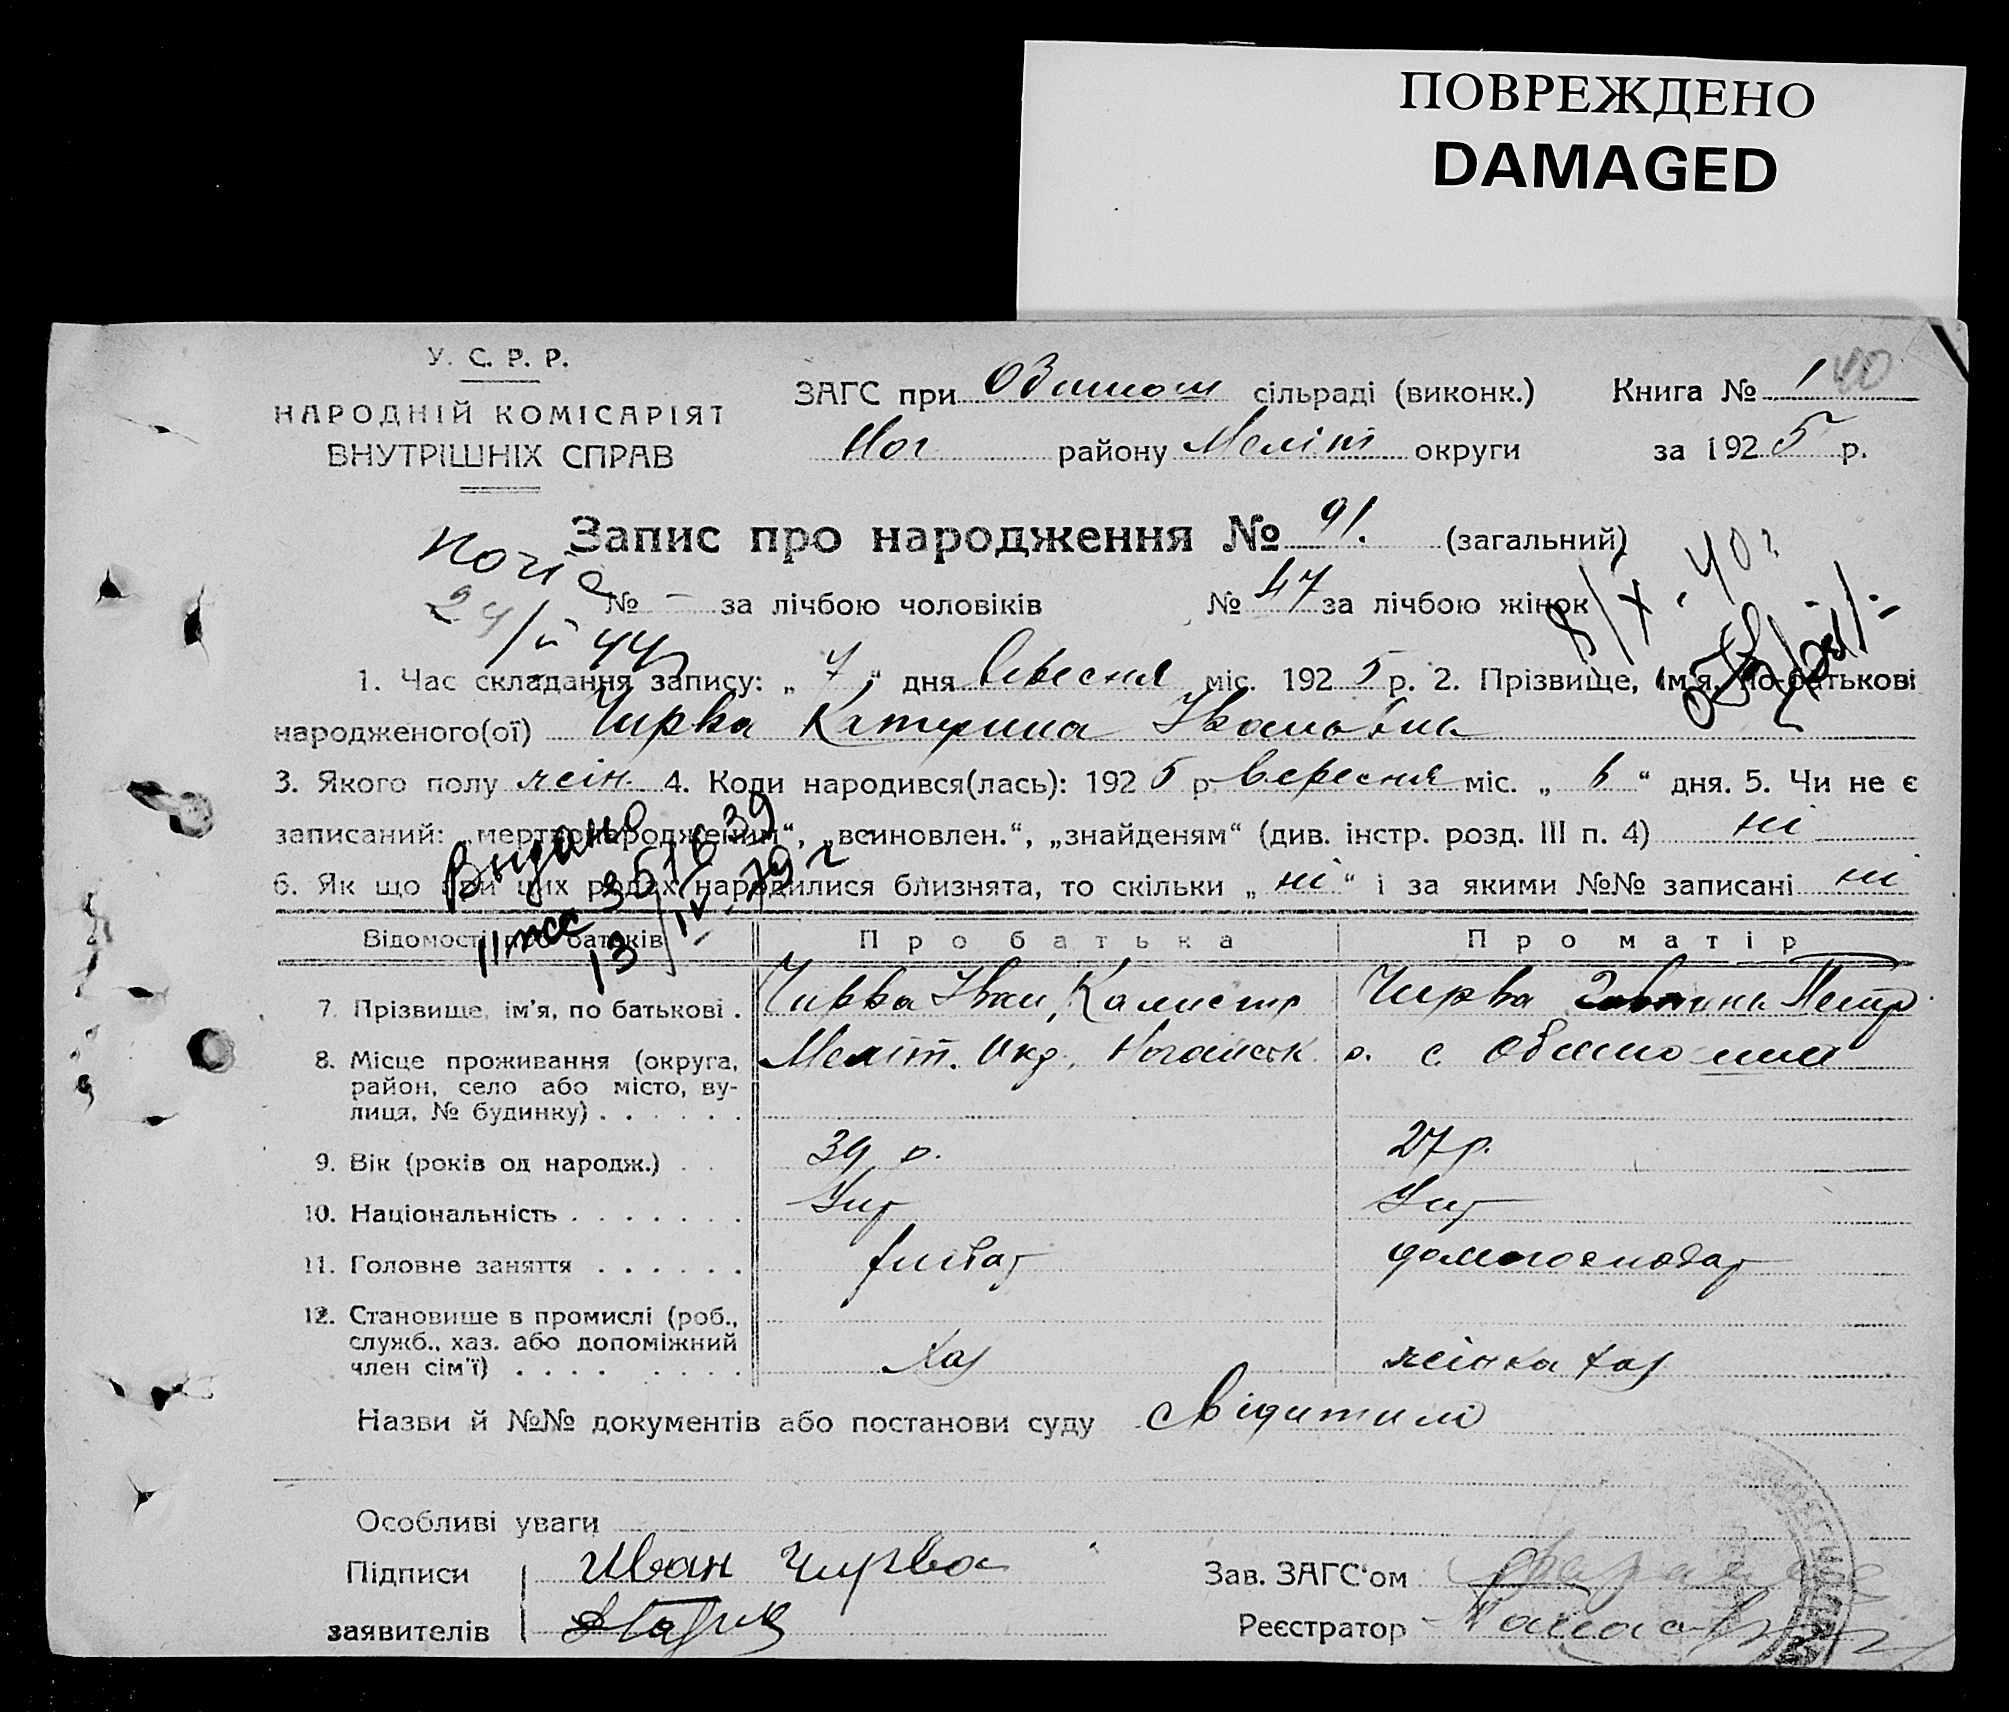 ПОВРЕЖДЕНО
DAMAGED
У. С. Р. Р.
НАРОДНІЙ КОМІСАРІЯТ
ВНУТРІШНІХ СПРАВ
ЗАГС при сільраді (виконк.) Книга № 1 40
Ног району Меліт округи за 1925 р.
Запис про народження № 91. (загальний)
копія
24/II 44
№ – за лічбою чоловіків № 47 за лічбою жінок
8/X. 40 г
1. Час складання запису: „7“ дня вересня міс. 1925 р. 2. Прізвище, ім'я, по-батькові
народженого(ої) Чирва Катерина Івановна
3. Якого полу жін. 4. Коли народився(лась): 1925 р. вересня міс. „ “ дня. 5. Чи не є
записаний: „мертвонародженим“, „всиновлен.“, „знайденям“ (див. інстр. розд. III п. 4) ні
6. Як що при цих родах народилися близнята, то скільки „ні“ і за якими №№ записані ні
Выдано
13/IV-79 г
Відомості про батьків Про батька Про матір
7. Прізвище, ім'я, по батькові . Чирва Іван Калистр Чирва Петр
8. Місце проживання (округа, Меліт. Окр. Ногайськ р. с.
район, село або місто, ву-
лиця, № будинку) . . . . . .
9. Вік (років од народж.) . . 39 р. 27 р.
10. Національність . . . . . . . Укр Укр
11. Головне заняття . . . . . . хлібор домогосподар
12. Становище в промислі (роб.,
служб., хаз. або допоміжний
член сім'ї) . . . . . . . . Хаз жінка хаз
Назви й №№ документів або постанови суду
Особливі уваги
Підписи Иван Чирва Зав. ЗАГС'ом
заявителів Реєстратор